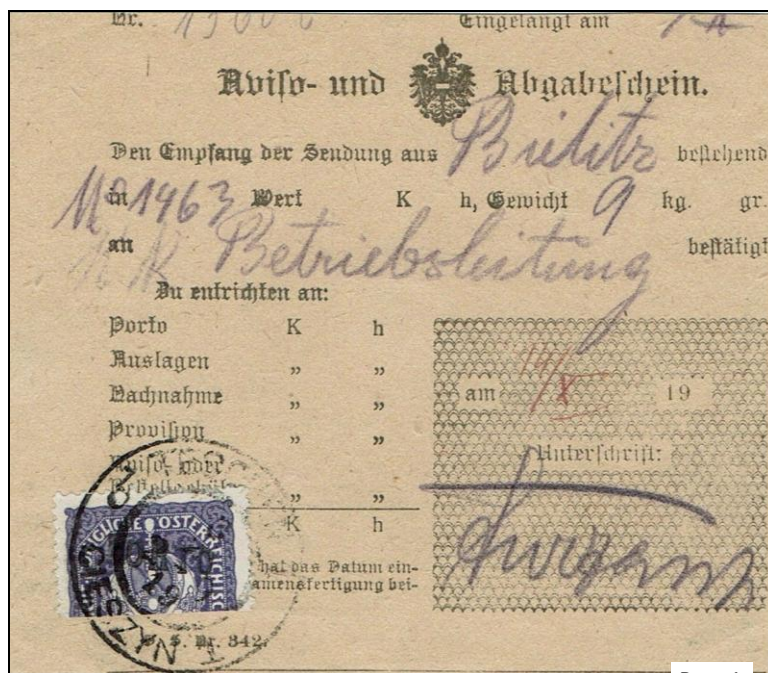 Nr. 13606 Eingelangt am
Aviso- und Abgabeschein.
Den Empfang der Sendung aus Bielitz bestehend
in No 1463 Wert K h, Gewicht 9 kg. gr.
an Betriebsleitung bestätigt
Zu entrichten an:
Porto K h
Auslagen „ „
Nachnahme „ „
Provision „ „
Aviso- oder
„ „
K h
am 14/X 19
Unterschrift:
hat das Datum ein-
amensfertigung bei-
IGLICHE ÖSTERREICHISC
D. S. Nr. 342.